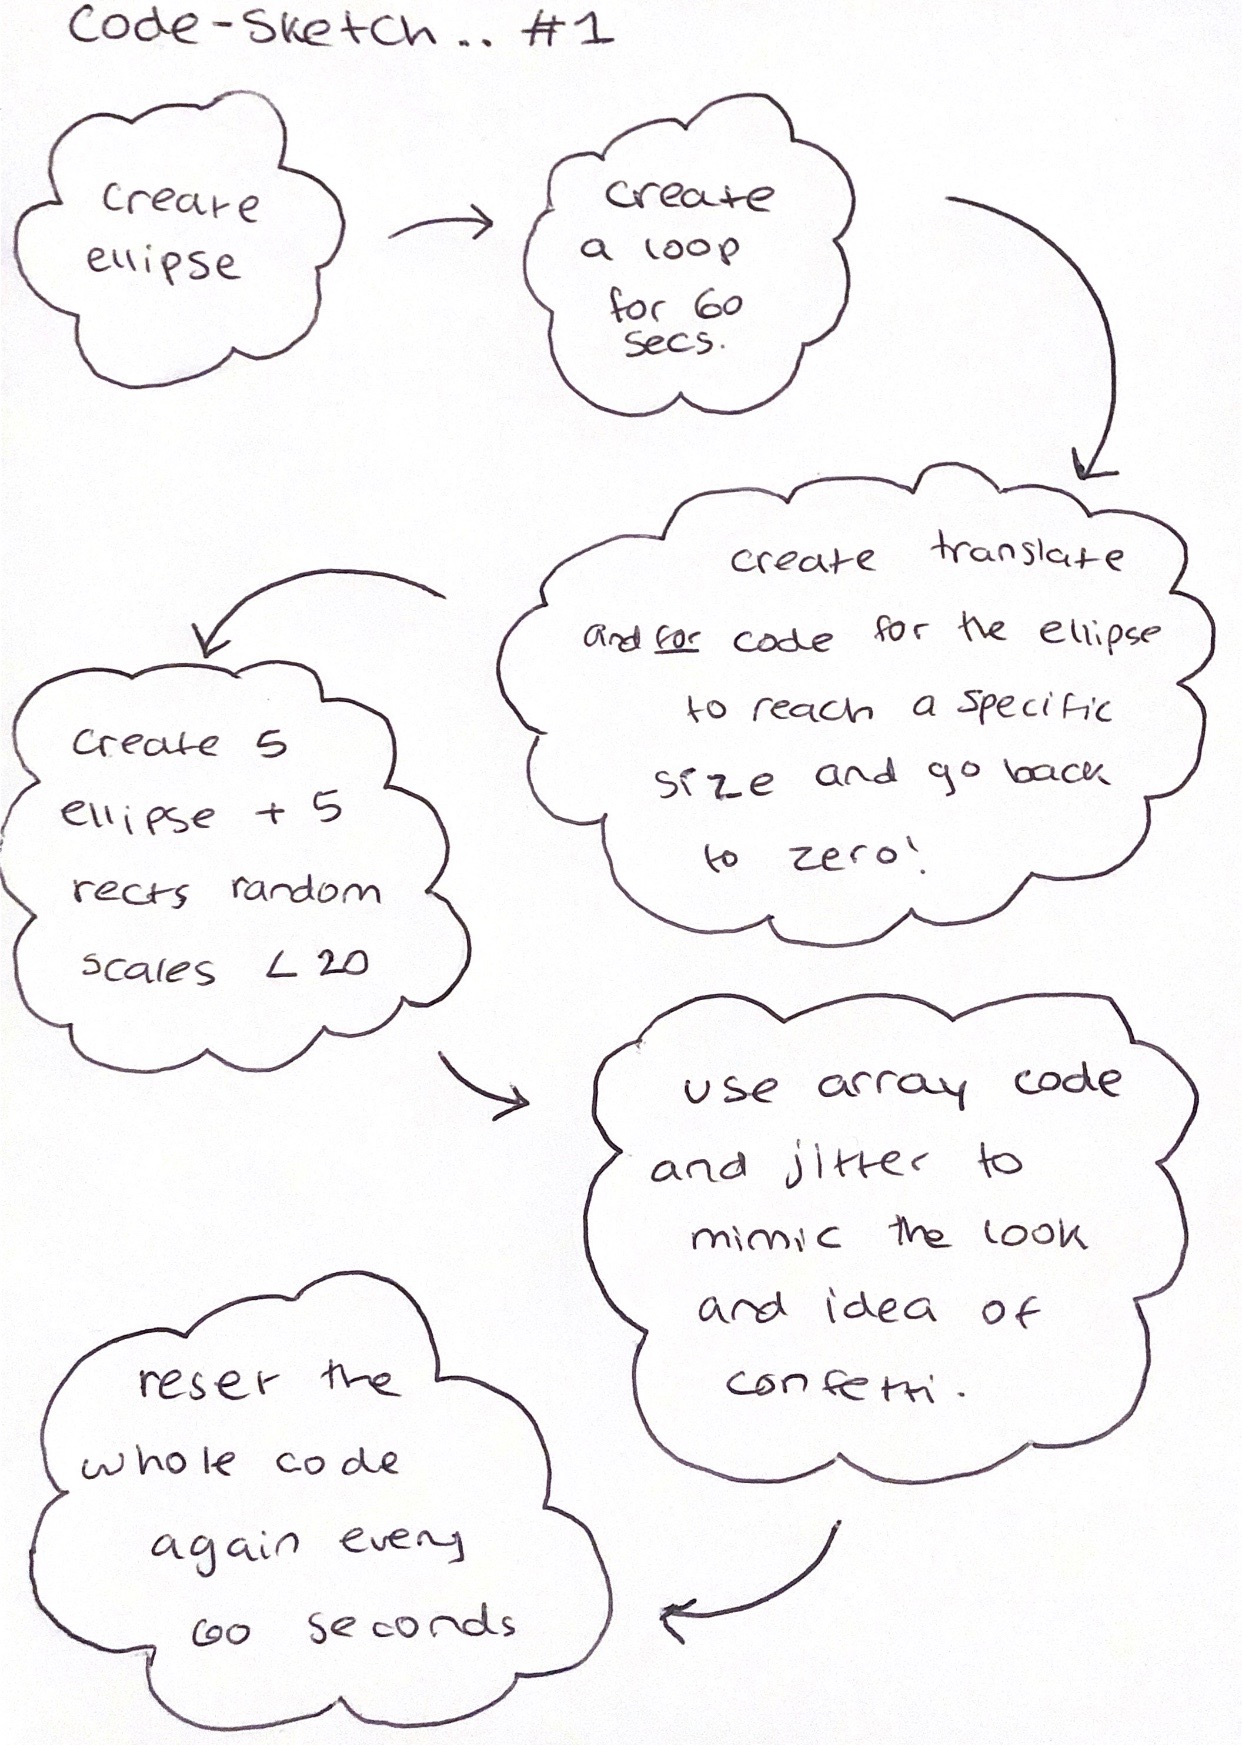 Code-Sketch.. #1
create
ellipse
create
a loop
for 60
secs.
create translate
and for code for the ellipse
to reach a specific
size and go back
to zero!
create 5
ellipse + 5
rects random
scales < 20
use array code
and jitter to
mimic the look
and idea of
confetti.
reset the
whole code
again every
60 seconds